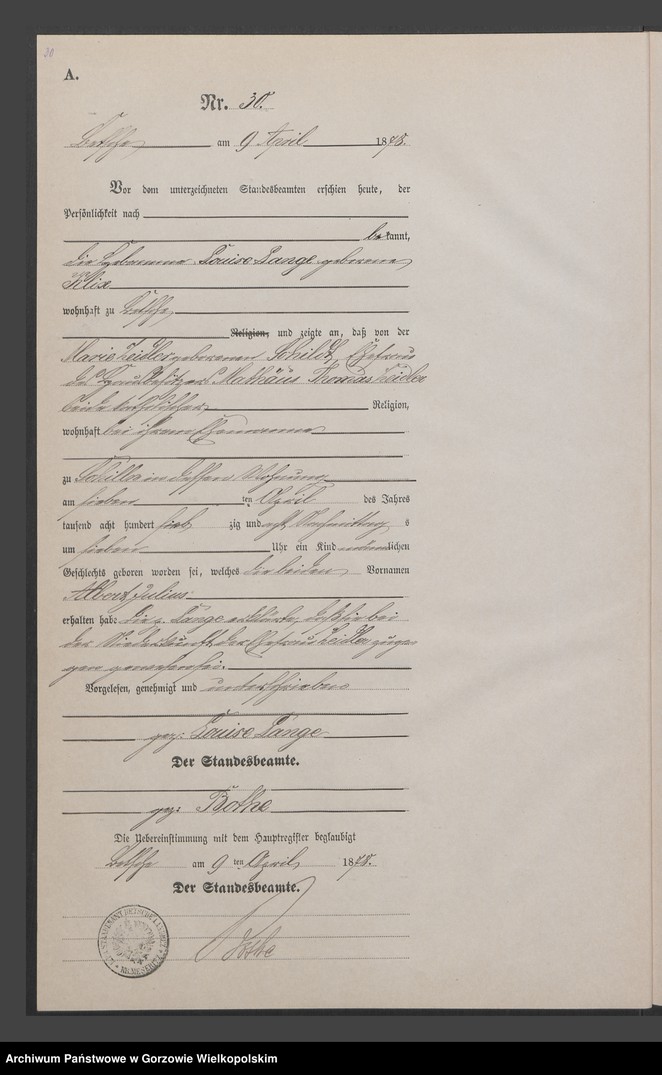 30
A.
Nr. 30.
Betsche am 9 April 1878.
Vor dem unterzeichneten Standesbeamten erschien heute, der
Persönlichkeit nach
be kannt,
die Hebamme Louise Lange geborene
Klix
wohnhaft zu Betsche
Religion, und zeigte an, daß von der
Marie Zeidler geborenen Schildt, Ehefrau
des Mathäus Thomas Zeidler
beide katholischer Religion,
wohnhaft bei ihrem Ehemanne
zu in dessen Wohnung
am sieben ten April des Jahres
tausend acht hundert sieb zig und acht Nachmittag s
um sieben Uhr ein Kind männlichen
Geschlechts geboren worden sei, welches die beiden Vornamen
Albert Julius
erhalten habe Die p. Lange erklärte, daß sie bei
der Niederkunft der Ehefrau Zeidler zuge
gen gewesen sei.
Vorgelesen, genehmigt und unterschrieben
gez: Louise Lange
Der Standesbeamte.
gez: Bothe
Die Uebereinstimmung mit dem Hauptregister beglaubigt
Betsche am 9 ten April 1878.
Der Standesbeamte.
Bothe
Archiwum Państwowe w Gorzowie Wielkopolskim